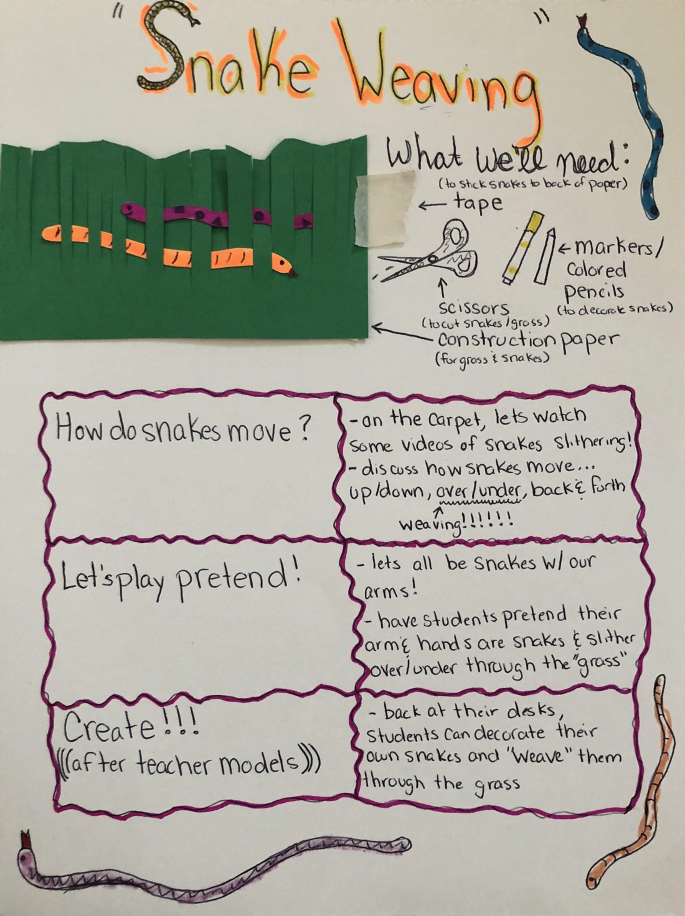 "Snake Weaving"
What we'll need:
(to stick snakes to back of paper)
← tape
← markers/
colored
pencils
(to decorate snakes)
scissors
(to cut snakes/grass)
construction paper
(for grass & snakes)
How do snakes move?
- on the carpet, lets watch
some videos of snakes slithering!
- discuss how snakes move...
up/down, over/under, back & forth
weaving!!!!!!
Let's play pretend!
- lets all be snakes w/ our
arms!
- have students pretend their
arm & hands are snakes & slither
over/under through the "grass"
Create!!!
(((after teacher models)))
- back at their desks,
students can decorate their
own snakes and "weave" them
through the grass